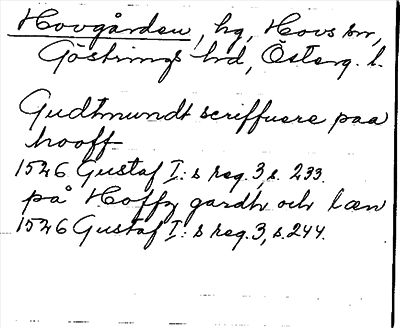 Hovgården, hg, Hovs sn,
Göstrings hd, Österg. l.
Gudtmundt scriffuere paa
hooff
1526 Gustaf I:s reg. 3, s. 233.
på Hoffz gardh och læn
1526 Gustaf I:s reg. 3, s. 244.